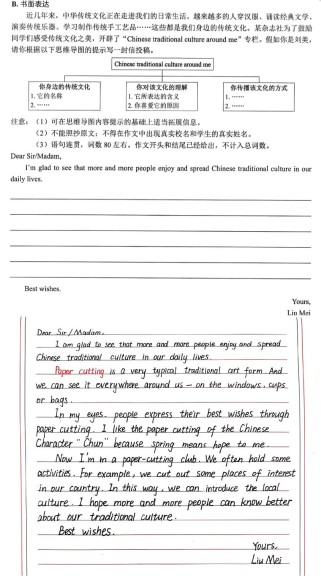 B. 书面表达
近几年来，中华传统文化正在走进我们的日常生活，越来越多的人穿汉服、诵读经典文学、
演奏传统乐器、学习制作传统手工艺品……这些都是我们身边的传统文化。某杂志社为了鼓励
同学们感受传统文化之美，开辟了“Chinese traditional culture around me”专栏，假如你是刘美，
请你根据以下思维导图的提示写一封信投稿。
Chinese traditional culture around me
你身边的传统文化 你对该文化的理解 你传播该文化的方式
1. 它的名称 1. 它所表达的含义 1. ……
2. …… 2. 你喜爱它的原因 2. ……
注意：（1）可在思维导图内容提示的基础上适当拓展信息。
（2）不能照抄原文；不得在作文中出现真实校名和学生的真实姓名。
（3）语句连贯，词数 80 左右。作文开头和结尾已经给出，不计入总词数。
Dear Sir/Madam,
I'm glad to see that more and more people enjoy and spread Chinese traditional culture in our
daily lives.
Best wishes.
Yours,
Liu Mei
Dear Sir / Madam,
I am glad to see that more and more people enjoy and spread
Chinese traditional culture in our daily lives.
Paper cutting is a very typical traditional art form. And
we can see it everywhere around us — on the windows, cups
or bags.
In my eyes, people express their best wishes through
paper cutting. I like the paper cutting of the Chinese
Character "Chun" because spring means hope to me.
Now I'm in a paper-cutting club. We often hold some
activities. For example, we cut out some places of interest
in our country. In this way, we can introduce the local
culture. I hope more and more people can know better
about our traditional culture.
Best wishes.
Yours,
Liu Mei